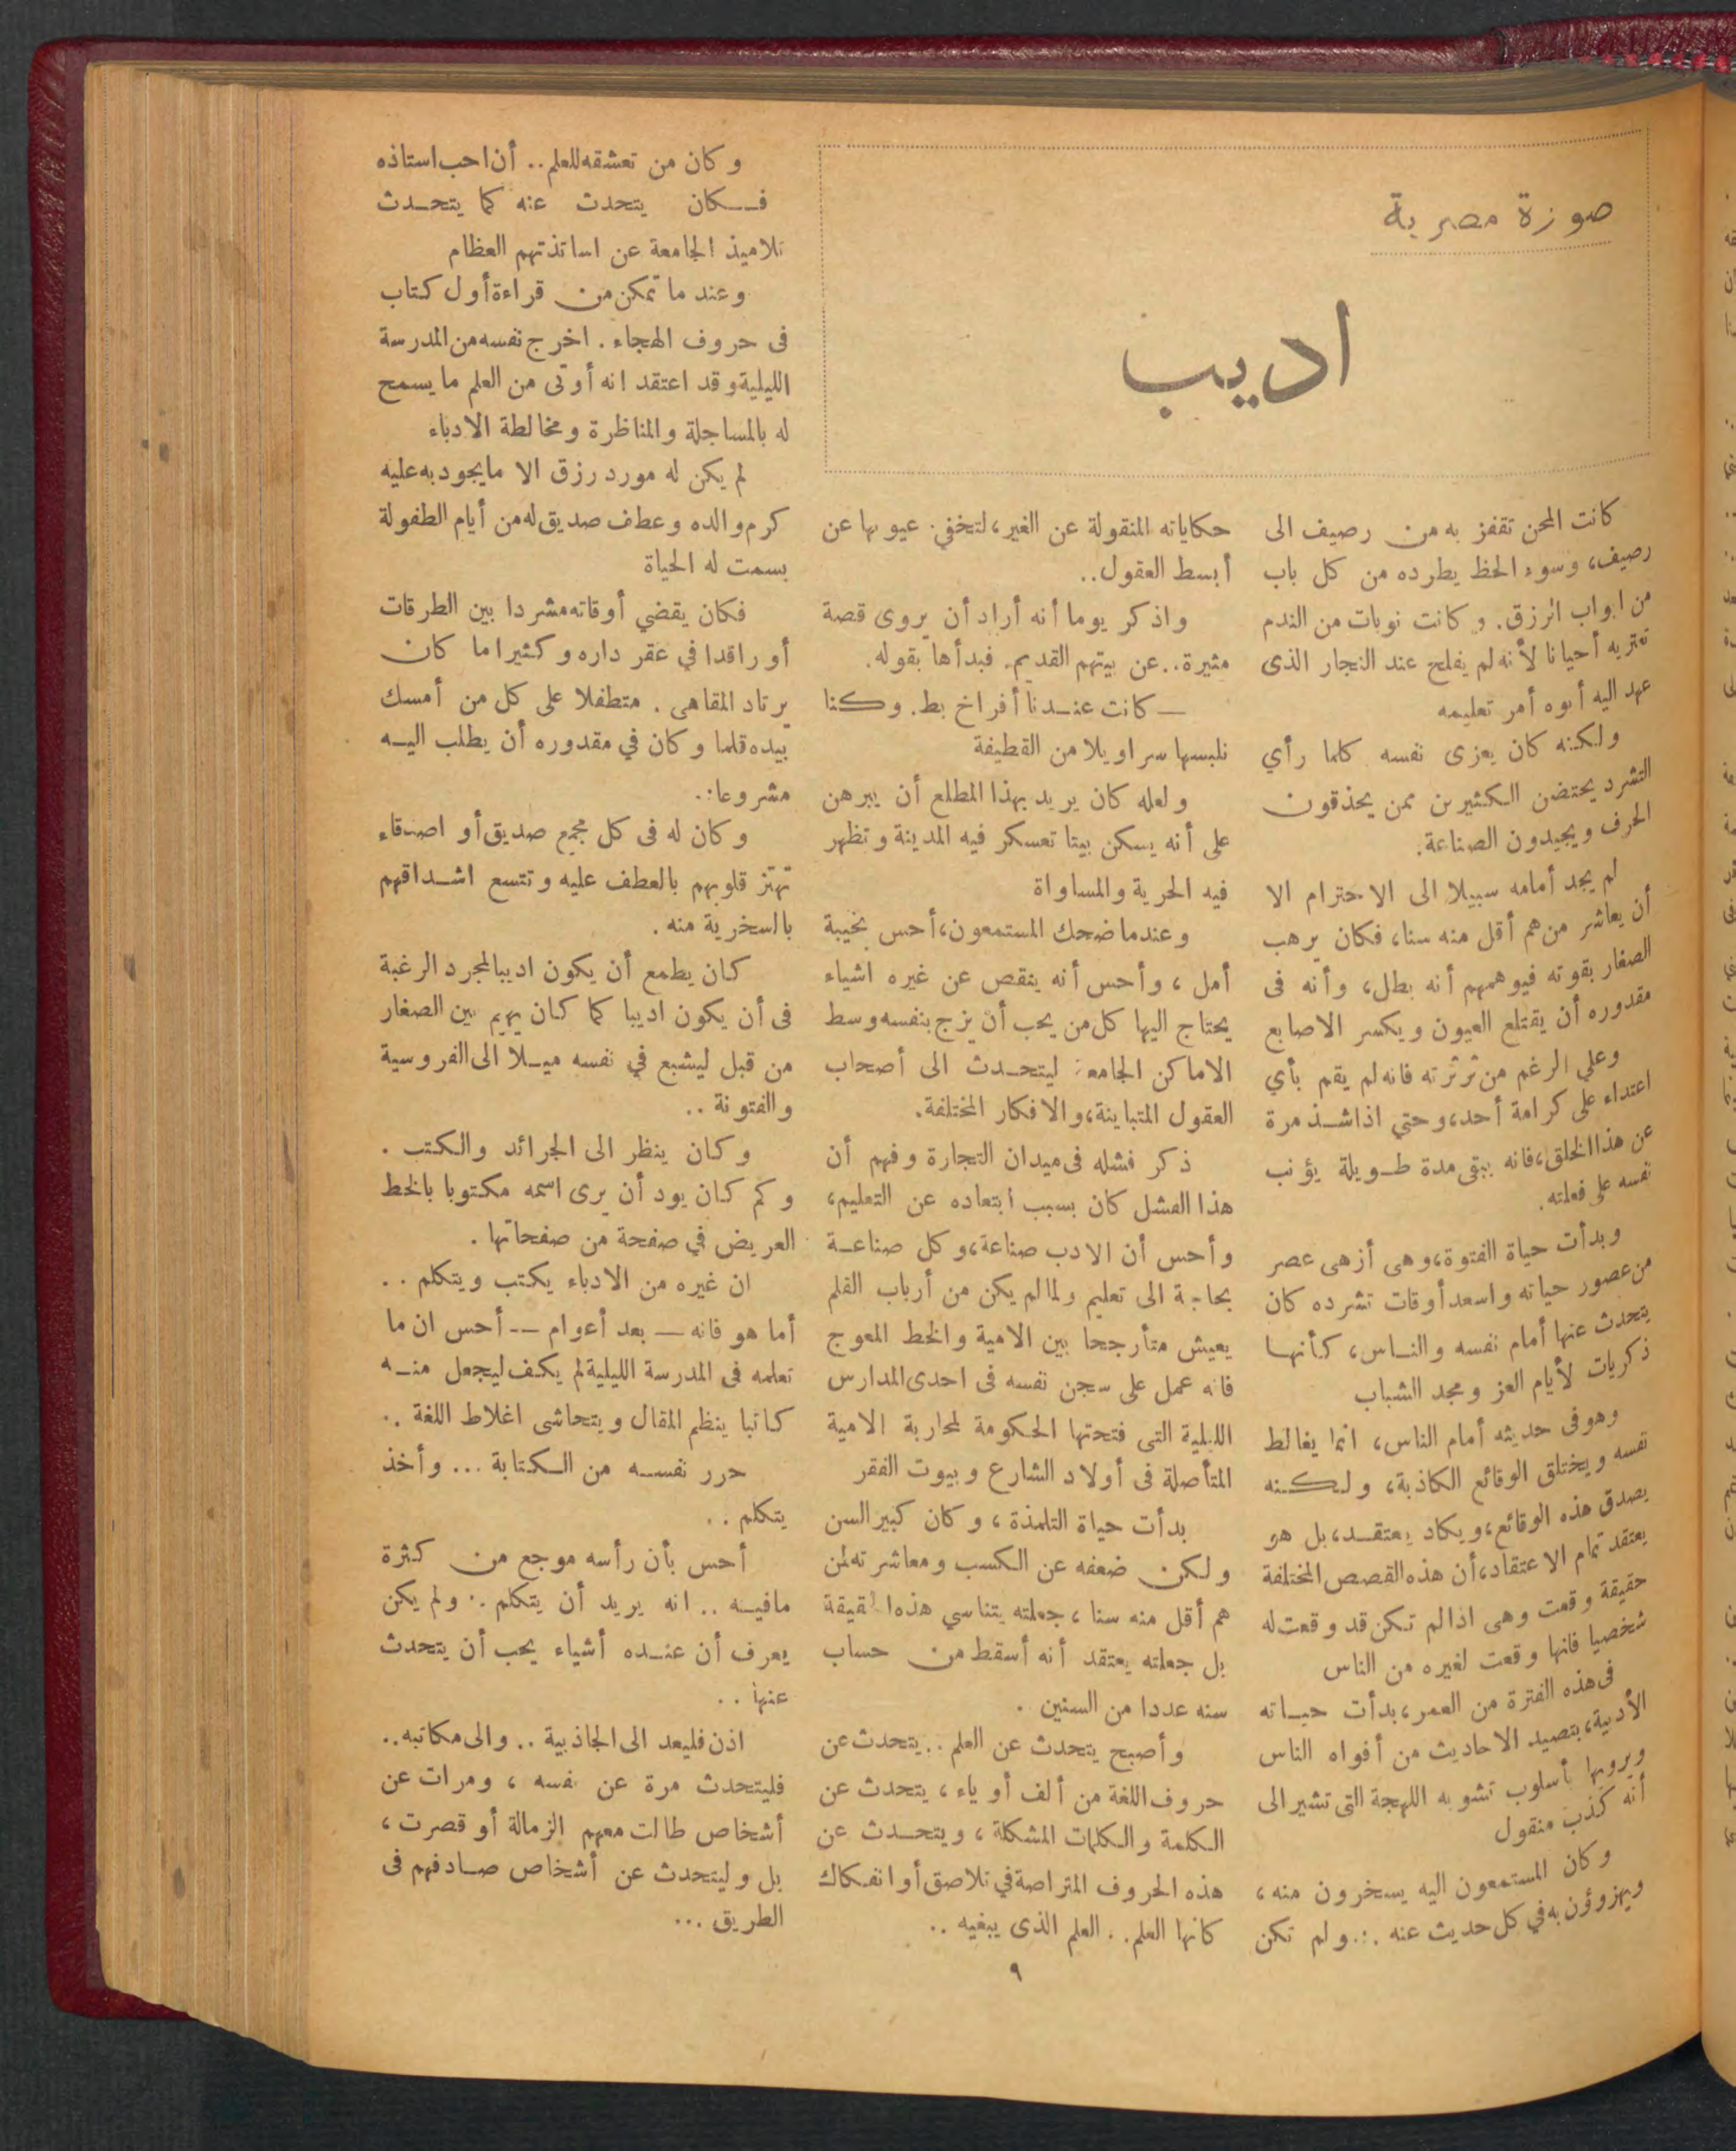 صورة مصرية
اديب
كانت المحن تقفز به من رصيف الى
رصيف، وسوء الحظ يطرده من كل باب
من ابواب الرزق. وكانت نوبات من الندم
تعتريه أحيانا لأنه لم يفلح عند النجار الذى
عهد اليه أبوه أمر تعليمه
ولكنه كان يعزى نفسه كلما رأي
التشرد يحتضن الكثيرين ممن يحذقون
الحرف ويجيدون الصناعة.
لم يجد أمامه سبيلا الى الاحترام الا
أن يعاشر من هم أقل منه سنا، فكان يرهب
الصغار بقوته فيوهمهم أنه بطل، وأنه فى
مقدوره أن يقتلع العيون ويكسر الاصابع
وعلي الرغم من ثرثرته فانه لم يقم بأي
اعتداء على كرامة أحد، وحتي اذا شذ مرة
عن هذا الخلق، فانه يبقى مدة طويلة يؤنب
نفسه على فعلته.
وبدأت حياة الفتوة، وهى أزهى عصر
من عصور حياته واسعد أوقات تشرده كان
يتحدث عنها أمام نفسه والناس، كأنها
ذكريات لأيام العز ومجد الشباب
وهو فى حديثه أمام الناس، انما يغالط
نفسه ويختلق الوقائع الكاذبة، ولكنه
يصدق هذه الوقائع، ويكاد يعتقد، بل هو
يعتقد تمام الاعتقاد، أن هذه القصص المختلفة
حقيقة وقعت وهى اذا لم تكن قد وقعت له
شخصيا فانها وقعت لغيره من الناس
فى هذه الفترة من العمر، بدأت حياته
الأدبية، بتصيد الاحاديث من أفواه الناس
ويرويها بأسلوب تشوبه اللهجة التى تشير الى
أنه كذب منقول
وكان المستمعون اليه يسخرون منه،
ويهزؤن به في كل حديث عنه .:. ولم تكن
حكاياته المنقولة عن الغير، لتخفي عيوبها عن
أبسط العقول..
واذكر يوما أنه أراد أن يروى قصة
مثيرة.. عن بيتهم القديم. فبدأها بقوله.
— كانت عندنا أفراخ بط. وكنا
نلبسها سراويلا من القطيفة
ولعله كان يريد بهذا المطلع أن يبرهن
على أنه يسكن بيتا تعسكر فيه المدينة وتظهر
فيه الحرية والمساواة
وعندما ضحك المستمعون، أحس بخيبة
أمل، وأحس أنه ينقص عن غيره اشياء
يحتاج اليها كل من يحب أن يزج بنفسه وسط
الاماكن الجامعة ليتحدث الى أصحاب
العقول المتباينة، والافكار المختلفة.
ذكر فشله فى ميدان التجارة وفهم أن
هذا الفشل كان بسبب ابتعاده عن التعليم،
وأحس أن الادب صناعة، وكل صناعة
بحاجة الى تعليم ولما لم يكن من أرباب القلم
يعيش متأرجحا بين الامية والخط المعوج
فانه عمل على سجن نفسه فى احدى المدارس
الليلية التى فتحتها الحكومة لمحاربة الامية
المتأصلة فى أولاد الشارع وبيوت الفقر
بدأت حياة التلمذة، وكان كبير السن
ولكن ضعفه عن الكسب ومعاشرته لمن
هم أقل منه سنا، جعلته يتناسي هذه الحقيقة
بل جعلته يعتقد أنه أسقط من حساب
سنه عددا من السنين .
وأصبح يتحدث عن العلم .. يتحدث عن
حروف اللغة من ألف أو ياء، يتحدث عن
الكلمة والكلمات المشكلة، ويتحدث عن
هذه الحروف المتراصة في تلاصق أو انفكاك
كانها العلم.. العلم الذى يبغيه ..
وكان من تعشقه للعلم.. أن احب استاذه
فكان يتحدث عنه كما يتحدث
تلاميذ الجامعة عن اساتذتهم العظام
وعند ما تمكن من قراءة أول كتاب
فى حروف الهجاء . اخرج نفسه من المدرسة
الليلية وقد اعتقد انه أوتى من العلم ما يسمح
له بالمساجلة والمناظرة ومخالطة الادباء
لم يكن له مورد رزق الا ما يجود به عليه
كرم والده وعطف صديق له من أيام الطفولة
بسمت له الحياة
فكان يقضي أوقاته مشردا بين الطرقات
أو راقدا في عقر داره وكثيرا ما كان
يرتاد المقاهى . متطفلا على كل من أمسك
بيده قلما وكان في مقدوره أن يطلب اليه
مشروبا..
وكان له فى كل مجمع صديق أو اصدقاء
تهتز قلوبهم بالعطف عليه وتتسع اشداقهم
بالسخرية منه .
كان يطمع أن يكون اديبا لمجرد الرغبة
فى أن يكون اديبا كما كان يهيم بين الصغار
من قبل ليشبع في نفسه ميلا الى الفروسية
والفتونة ..
وكان ينظر الى الجرائد والكتب .
وكم كان يود أن يرى اسمه مكتوبا بالخط
العريض في صفحة من صفحاتها .
ان غيره من الادباء يكتب ويتكلم ..
أما هو فانه — بعد أعوام -- أحس ان ما
تعلمه فى المدرسة الليلية لم يكف ليجعل منه
كاتبا ينظم المقال ويتحاشى اغلاط اللغة ..
حرر نفسه من الكتابة ... وأخذ
يتكلم ..
أحس بأن رأسه موجع من كثرة
مافيه .. انه يريد أن يتكلم .. ولم يكن
يعرف أن عنده أشياء يحب أن يتحدث
عنها ..
اذن فليعد الى الجاذبية .. والى مكانه..
فليتحدث مرة عن نفسه، ومرات عن
أشخاص طالت معهم الزمالة أو قصرت،
بل وليتحدث عن أشخاص صادفهم فى
الطريق ...
٩